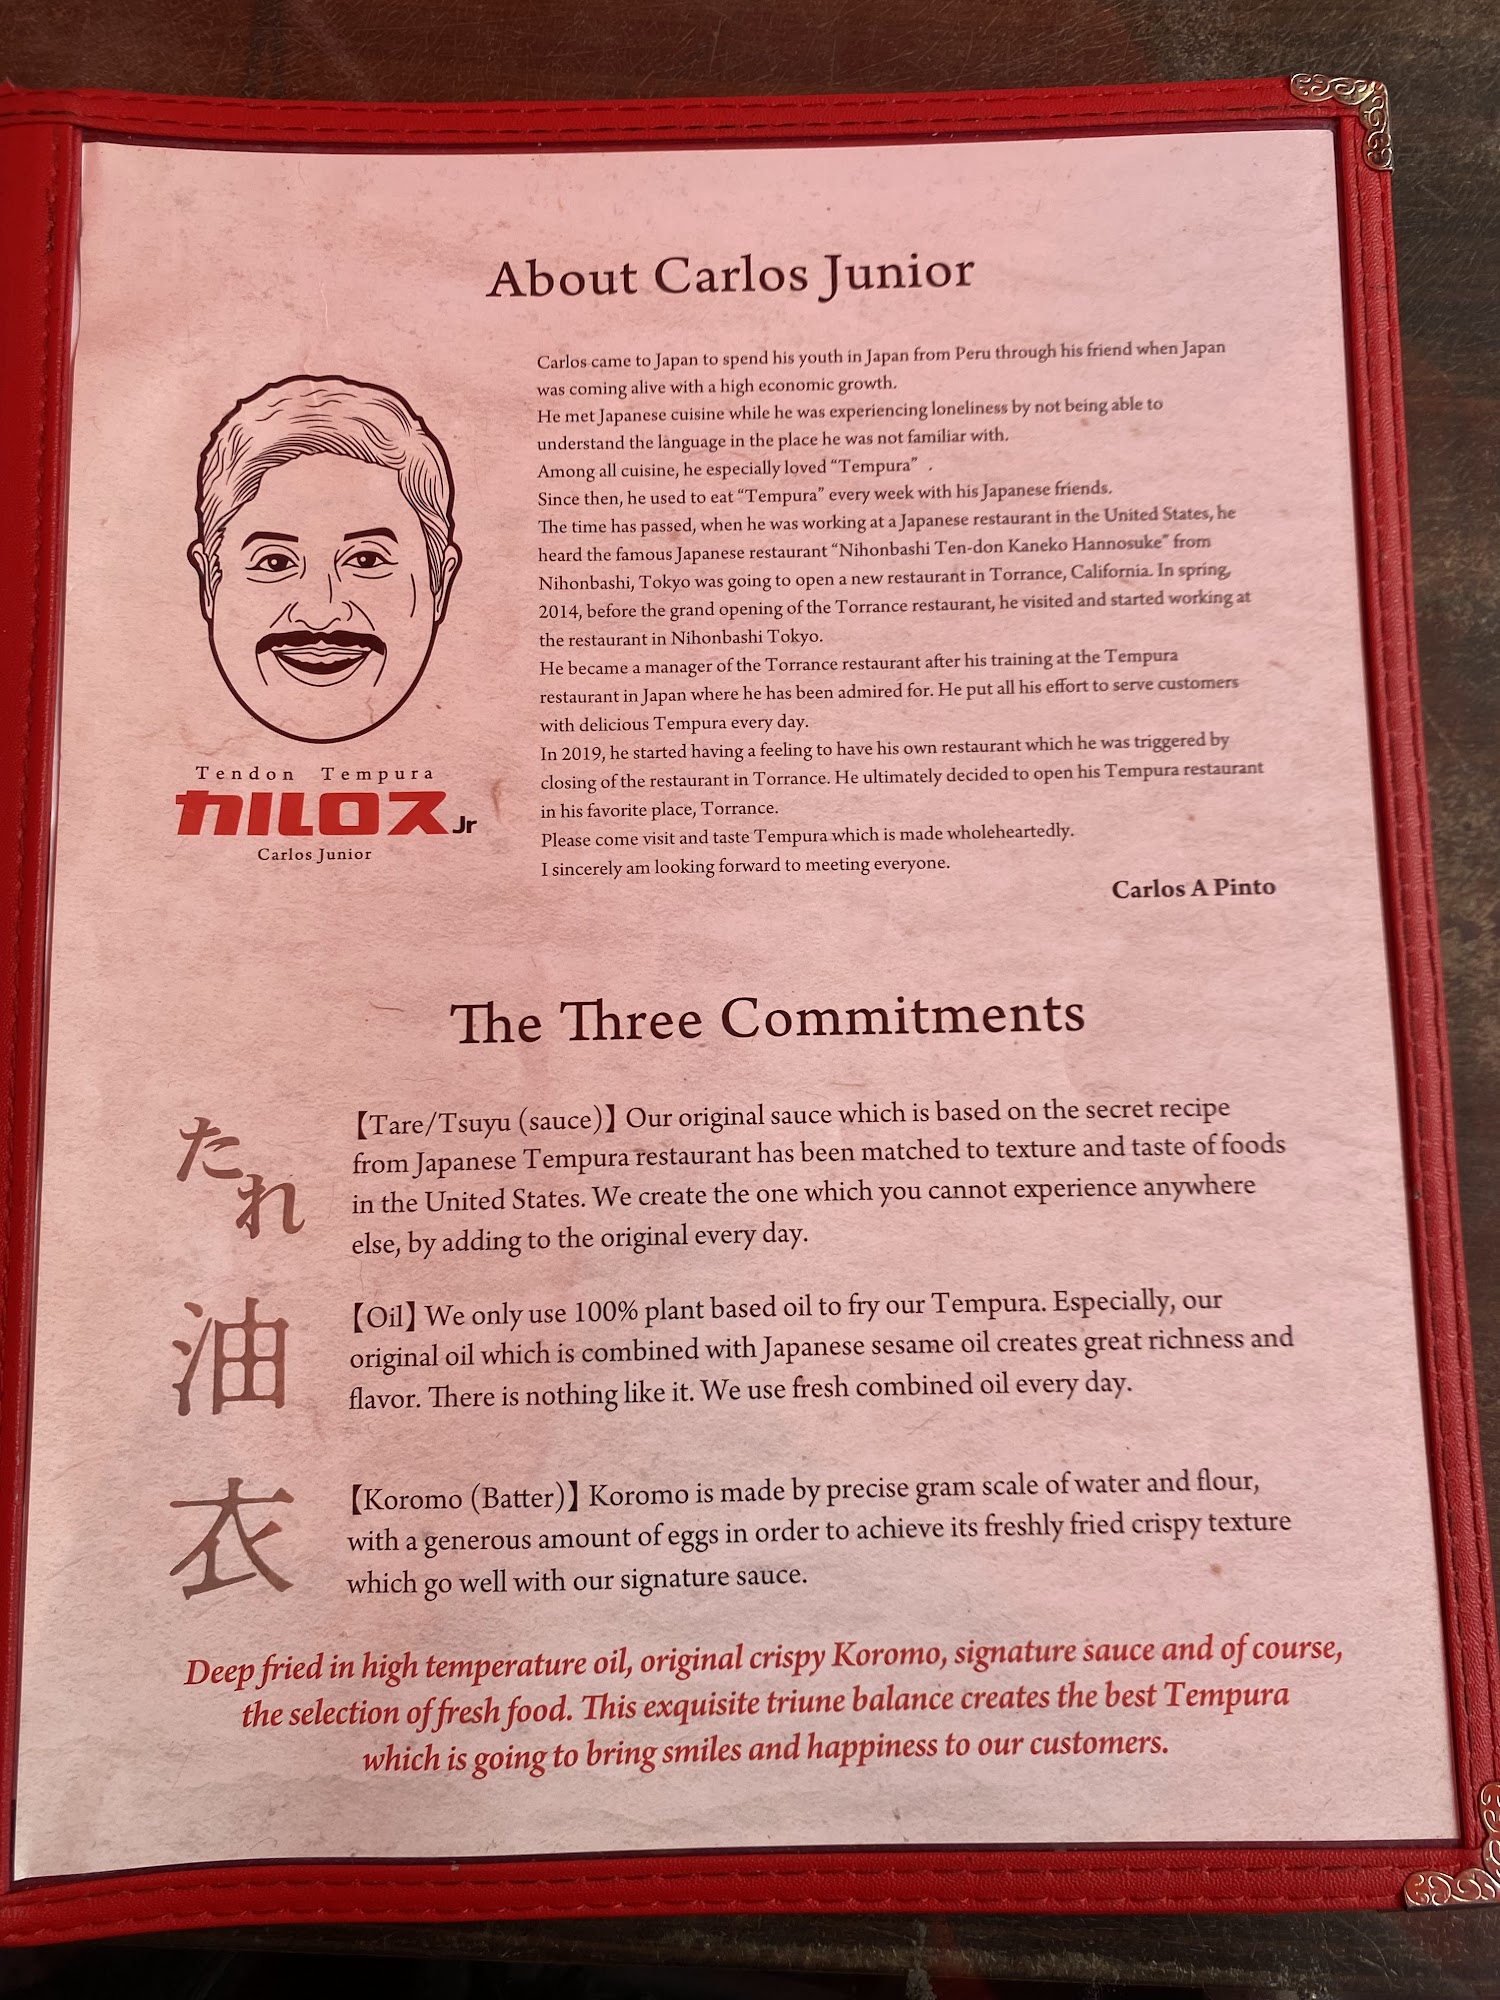 About Carlos Junior
Carlos came to Japan to spend his youth in Japan from Peru through his friend when Japan
was coming alive with a high economic growth.
He met Japanese cuisine while he was experiencing loneliness by not being able to
understand the language in the place he was not familiar with.
Among all cuisine, he especially loved “Tempura” .
Since then, he used to eat “Tempura” every week with his Japanese friends.
The time has passed, when he was working at a Japanese restaurant in the United States, he
heard the famous Japanese restaurant “Nihonbashi Ten-don Kaneko Hannosuke” from
Nihonbashi, Tokyo was going to open a new restaurant in Torrance, California. In spring,
2014, before the grand opening of the Torrance restaurant, he visited and started working at
the restaurant in Nihonbashi Tokyo.
He became a manager of the Torrance restaurant after his training at the Tempura
restaurant in Japan where he has been admired for. He put all his effort to serve customers
with delicious Tempura every day.
In 2019, he started having a feeling to have his own restaurant which he was triggered by
closing of the restaurant in Torrance. He ultimately decided to open his Tempura restaurant
in his favorite place, Torrance.
Please come visit and taste Tempura which is made wholeheartedly.
I sincerely am looking forward to meeting everyone.
Carlos A Pinto
Tendon Tempura
カルロスJr
Carlos Junior
The Three Commitments
たれ
【Tare/Tsuyu (sauce)】Our original sauce which is based on the secret recipe
from Japanese Tempura restaurant has been matched to texture and taste of foods
in the United States. We create the one which you cannot experience anywhere
else, by adding to the original every day.
油
【Oil】We only use 100% plant based oil to fry our Tempura. Especially, our
original oil which is combined with Japanese sesame oil creates great richness and
flavor. There is nothing like it. We use fresh combined oil every day.
衣
【Koromo (Batter)】Koromo is made by precise gram scale of water and flour,
with a generous amount of eggs in order to achieve its freshly fried crispy texture
which go well with our signature sauce.
Deep fried in high temperature oil, original crispy Koromo, signature sauce and of course,
the selection of fresh food. This exquisite triune balance creates the best Tempura
which is going to bring smiles and happiness to our customers.